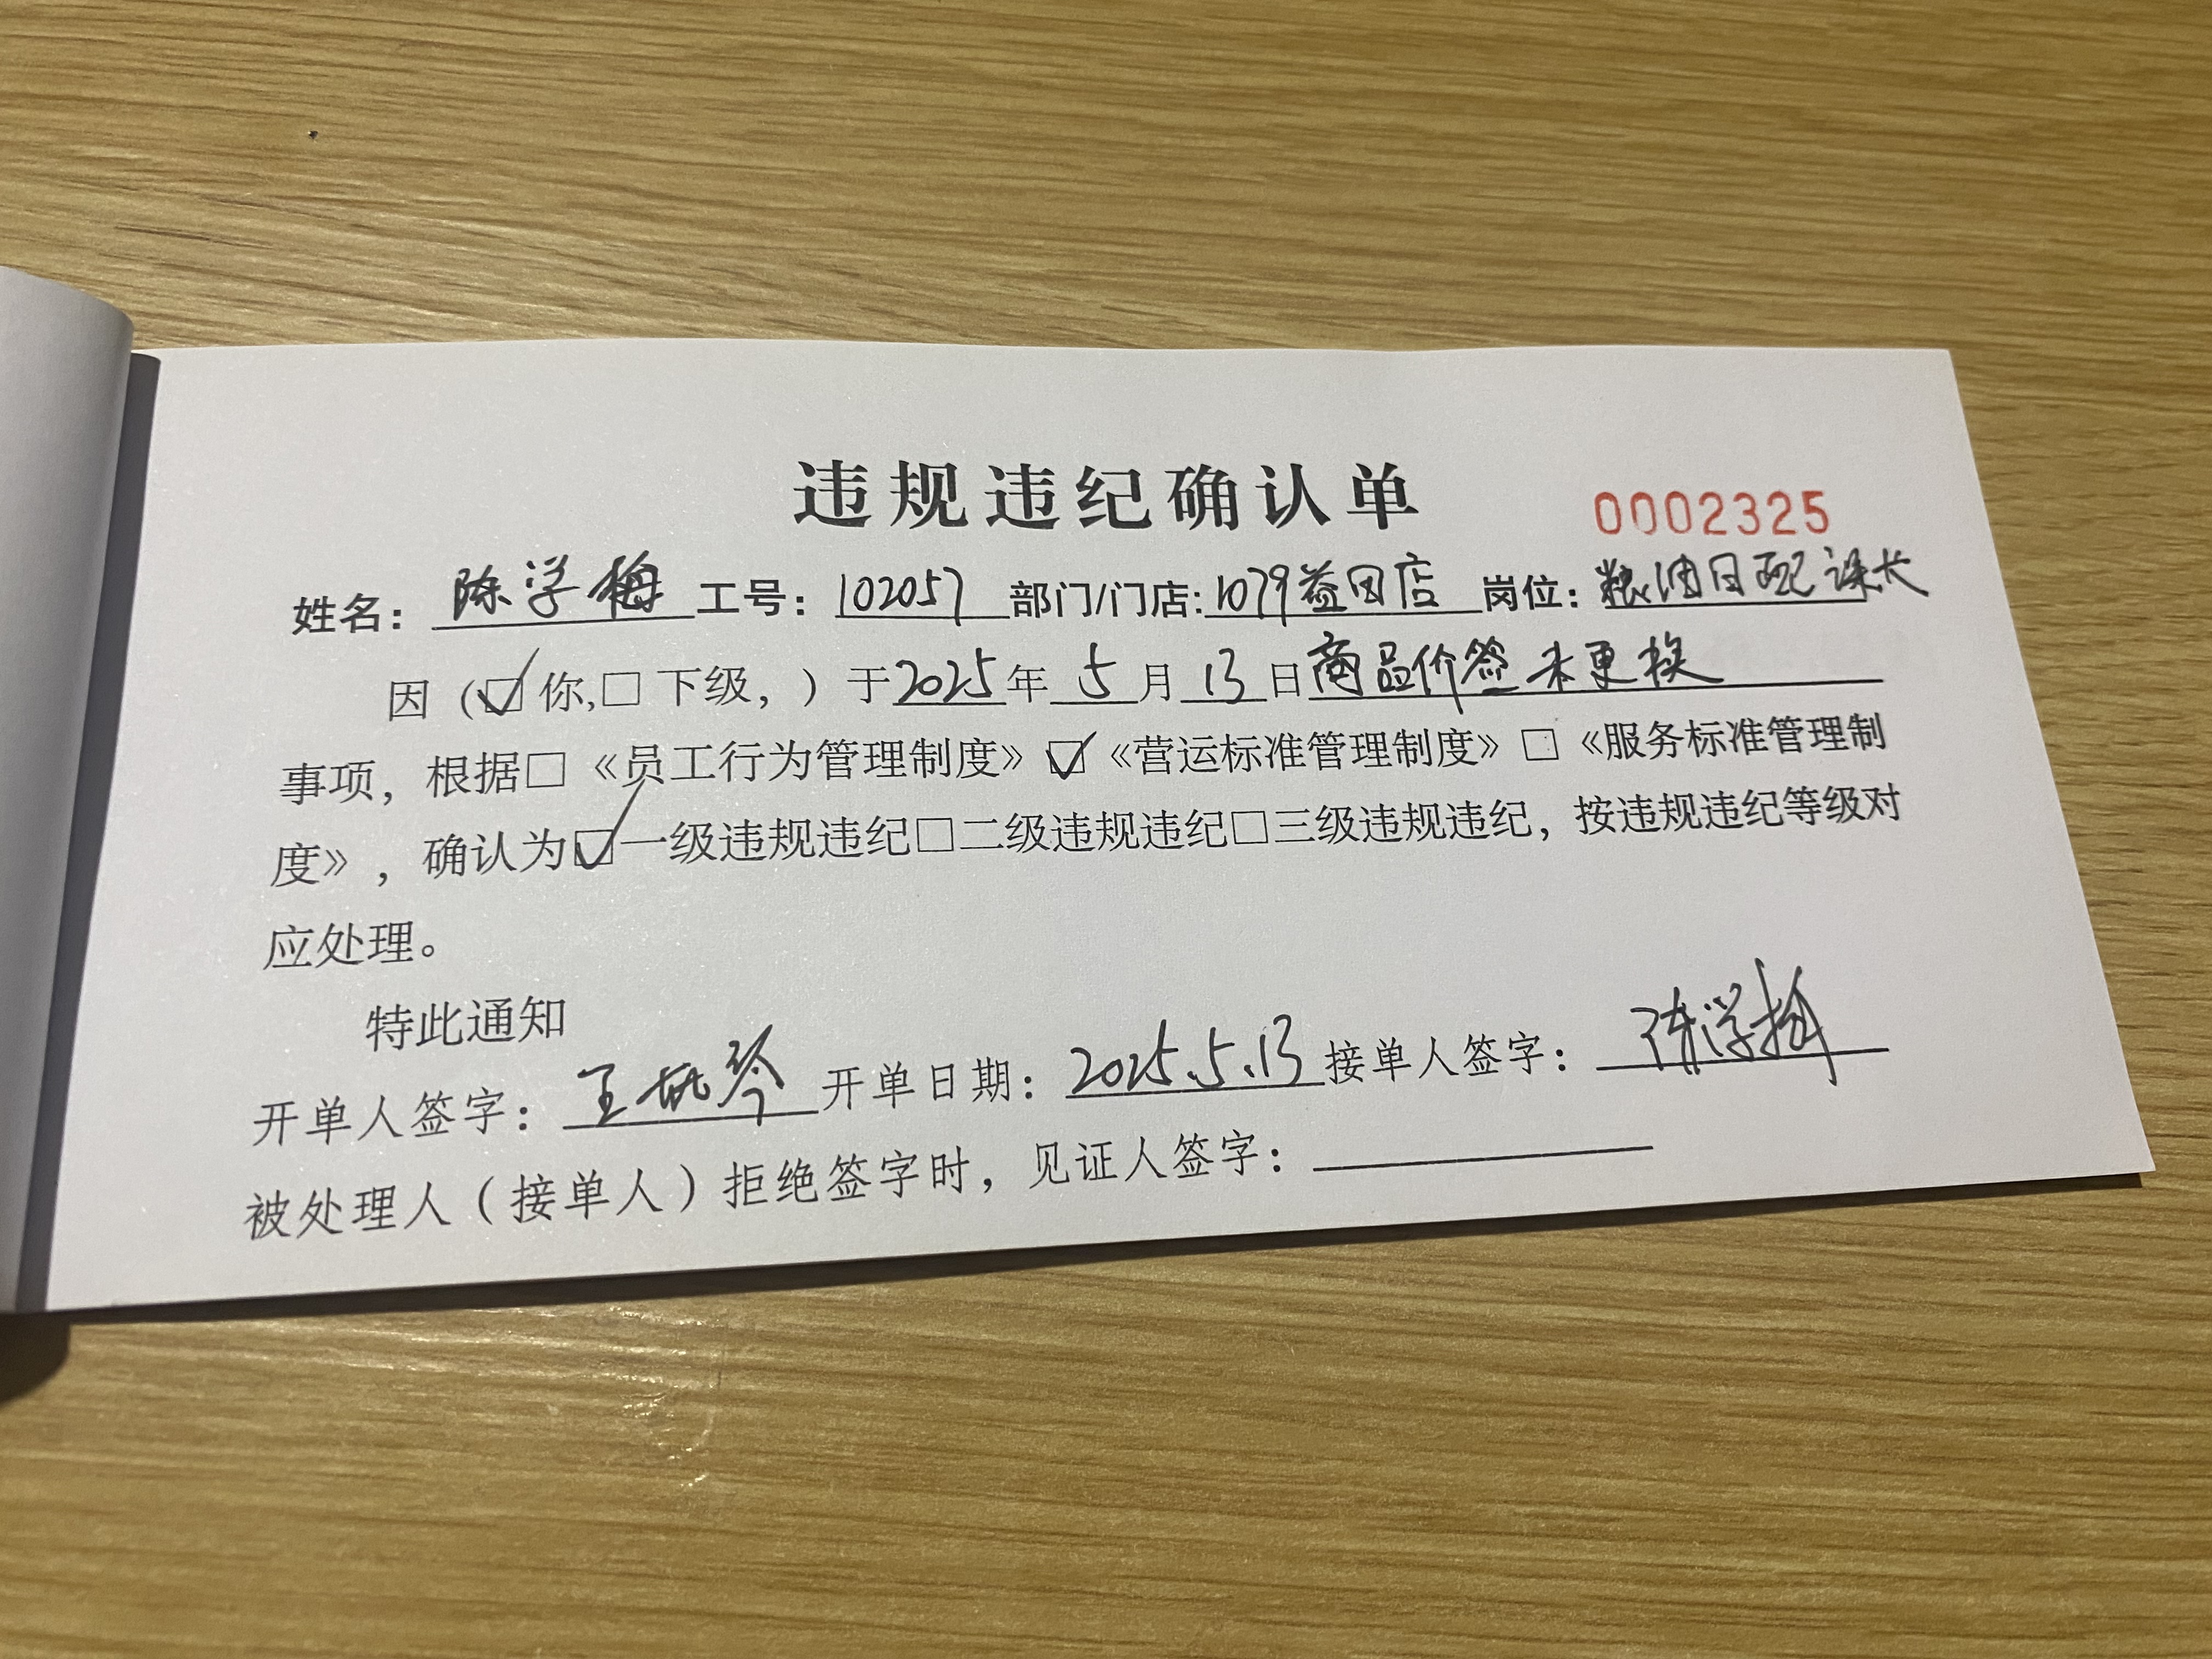 违规违纪确认单 0002325
姓名：陈学梅 工号：102057 部门/门店:1079益田店 岗位：粮油日配课长
因（☑你,□下级，）于2025年5月13日商品价签未更换
事项，根据□《员工行为管理制度》☑《营运标准管理制度》□《服务标准管理制
度》，确认为☑一级违规违纪□二级违规违纪□三级违规违纪，按违规违纪等级对
应处理。
特此通知
开单人签字：王 琴 开单日期：2025.5.13 接单人签字：陈学梅
被处理人（接单人）拒绝签字时，见证人签字：